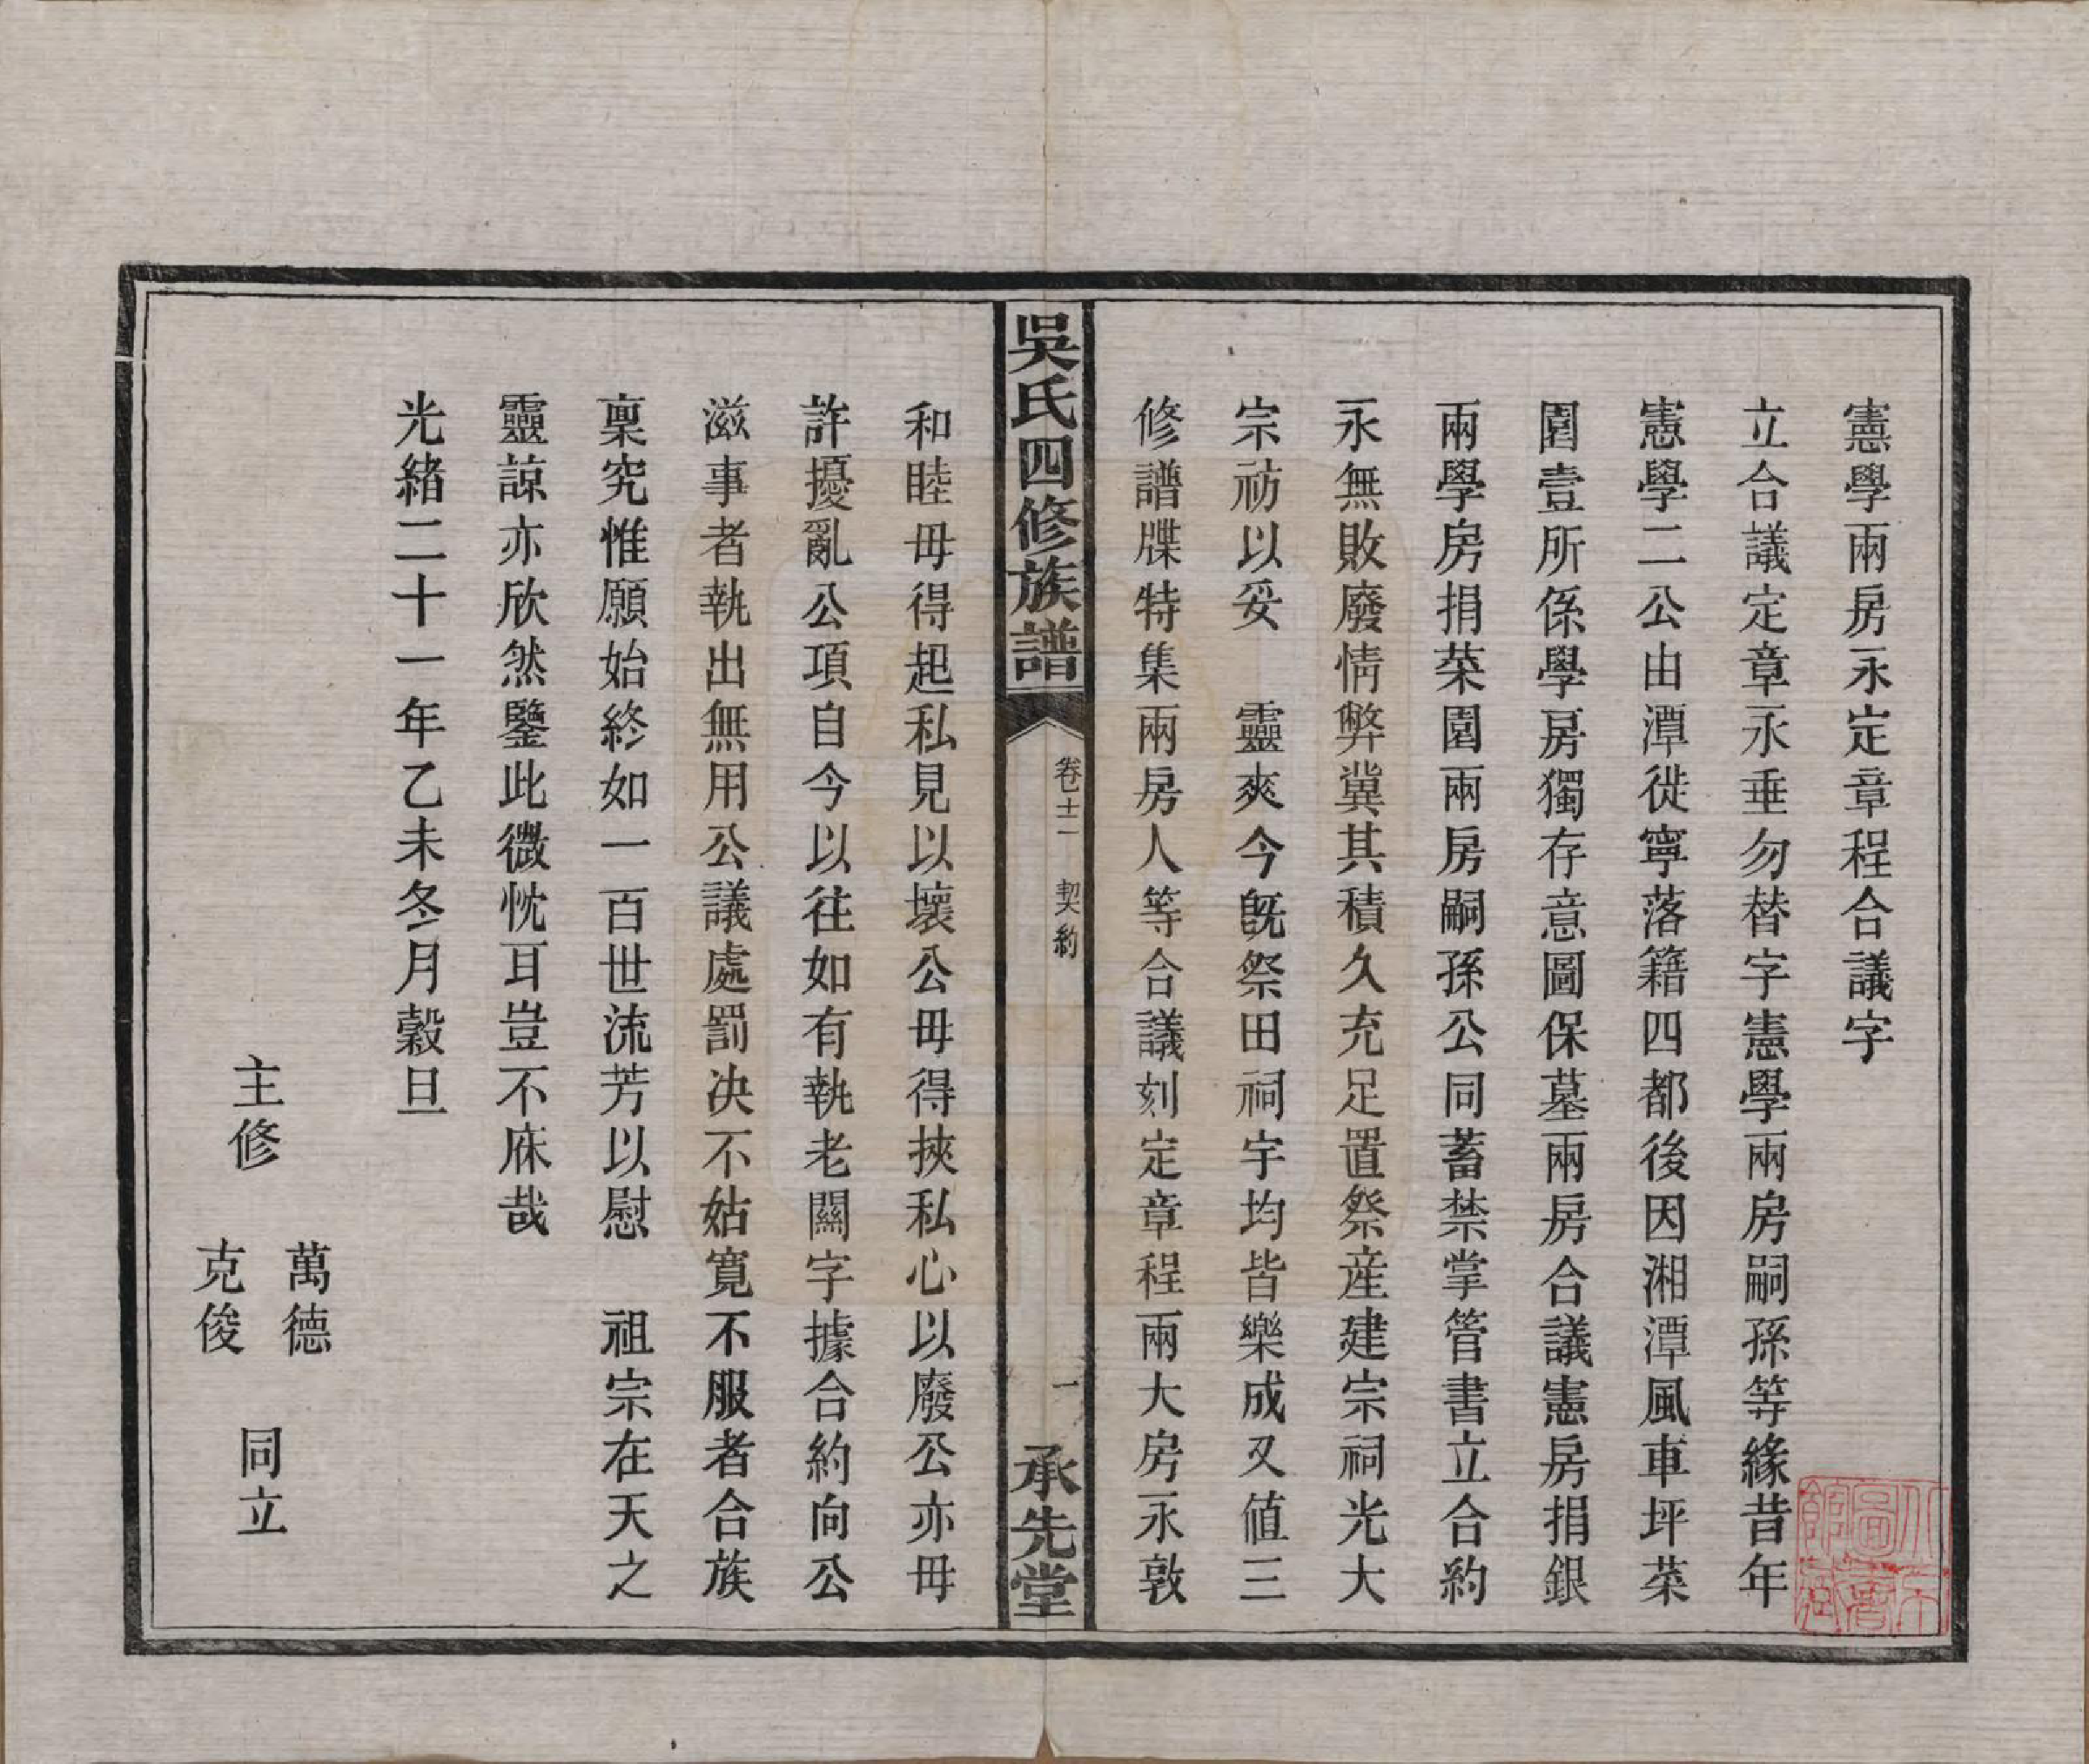 憲學兩房永定章程合議字
立合議定章永垂勿替字憲學兩房嗣孫等緣昔年
憲學二公由潭徙寧落籍四都後因湘潭風車坪菜
園壹所係學房獨存意圖保墓兩房合議憲房捐銀
兩學房捐菜園兩房嗣孫公同蓄禁掌管書立合約
永無敗廢情弊冀其積久充足置祭産建宗祠光大
宗祊以妥　靈爽今旣祭田祠宇均皆樂成又値三
修譜牒特集兩房人等合議刻定章程兩大房永敦
吳氏四修族譜
卷十二　契約
一
承先堂
和睦毋得起私見以壞公毋得挾私心以廢公亦毋
許擾亂公項自今以往如有執老鬮字據合約向公
滋事者執出無用公議處罰决不姑寬不服者合族
稟究惟願始終如一百世流芳以慰　祖宗在天之
靈諒亦欣然鑒此微忱耳豈不庥哉
光緒二十一年乙未冬月穀旦
主修　萬德　克俊　同立
北京圖書館藏